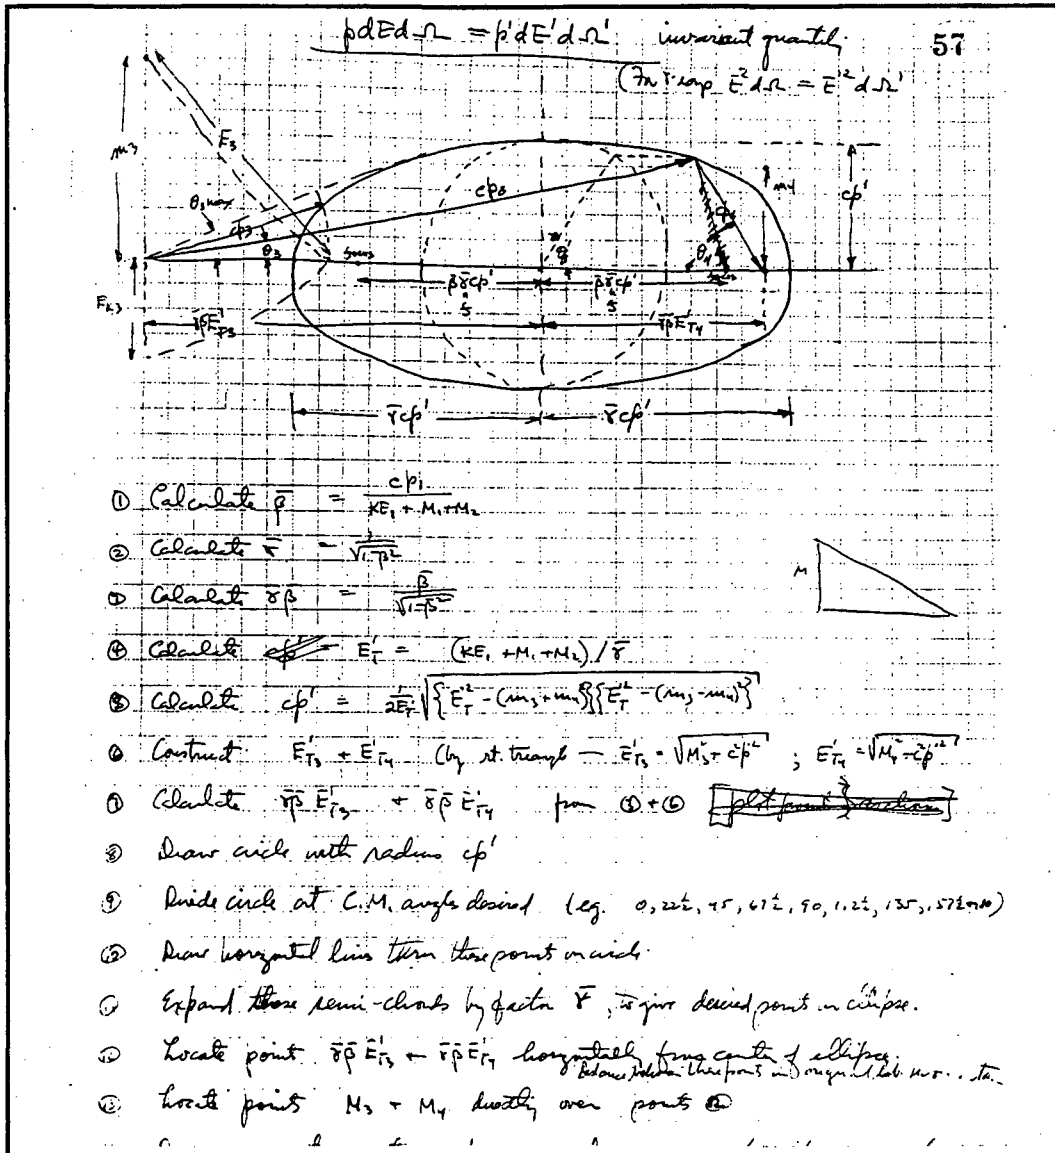 57
pdEdΩ = p'dE'dΩ' invariant quantity
E²dΩ = E'²dΩ'
m3
E3
θ3max
cp3
cp3
θ3
E_k3
focus
θ4
m4
cp'
β̄γ̄cp'
β̄γ̄cp'
γ̄β̄E'T3
γ̄β̄E'T4
γ̄cp'
γ̄cp'
① Calculate β̄ = cp₁ / KE₁ + M₁ + M₂
② Calculate γ̄ = 1/√1-β̄²
③ Calculate γ̄β̄ = β̄/√1-β̄²
M
④ Calculate E'T = (KE₁ + M₁ + M₂)/γ̄
⑤ Calculate cp' = 1/2E'T √{E'T² - (m3+m4)²}{E'T² - (m3-m4)²}
⑥ Construct E'T3 + E'T4 (by rt. triangle — E'T3 = √M3² + c²p'² ; E'T4 = √M4² + c²p'²
⑦ Calculate γ̄β̄ E'T3 + γ̄β̄ E'T4 from ③ + ⑥
⑧ Draw circle with radius cp'
⑨ Divide circle at C.M. angles desired (eg. 0, 22½, 45, 67½, 90, 112½, 135, 157½
⑩ Draw horizontal lines thru these points on circle.
⑪ Expand these semi-chords by factor γ̄, to give desired points on ellipse.
⑫ Locate point γ̄β̄ E'T3 + γ̄β̄ E'T4 horizontally from center of ellipse.
Distance between these points is original lab
⑬ Locate points M3 + M4 directly over points ⑫